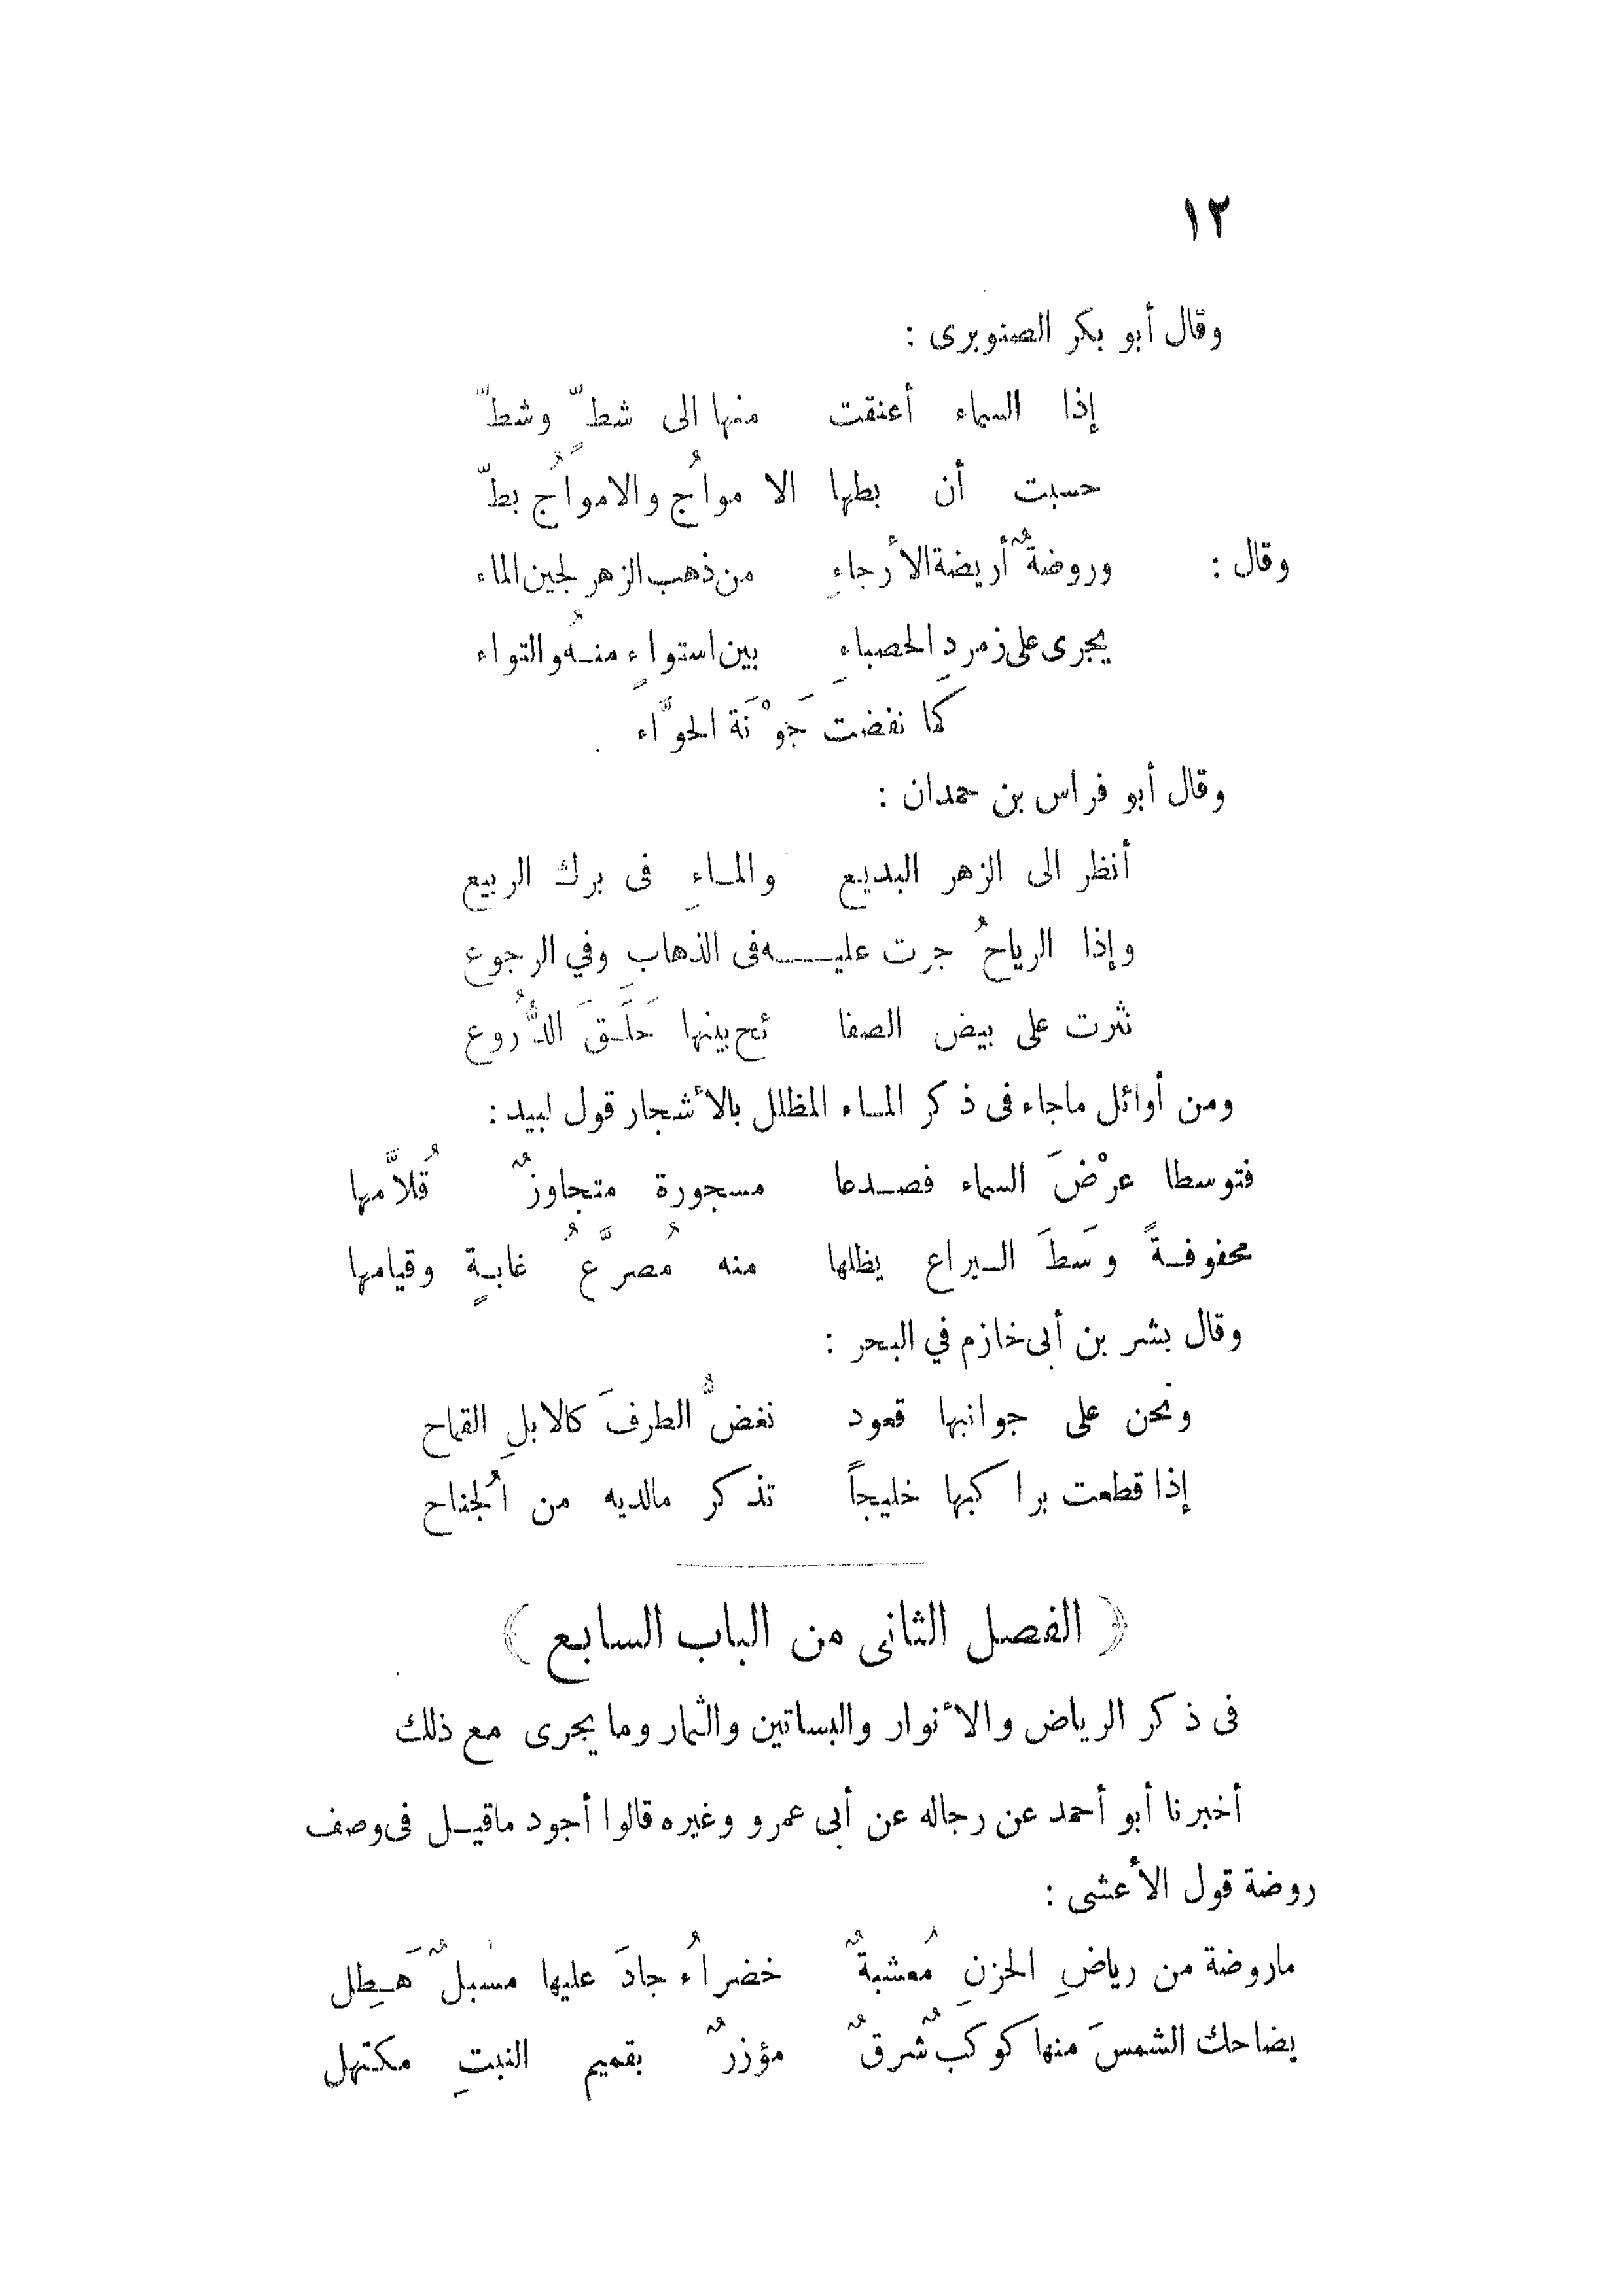 ١٢
وقال أبو بكر الصنوبرى :
إذا السماء أعنقت منها الى شطٍّ وشطّ
حسبت أن بطها الا مواجُ والامواجُ بطّ
وقال : وروضةٌ أريضة الأرجاءِ من ذهب الزهر لجين الماء
يجرى على زمردِ الحصباءِ بين استواءٍ منهُ والتواء
كما نفضت جَوْنَة الحوَّاء
وقال أبو فراس بن حمدان :
أنظر الى الزهر البديع والماءِ فى برك الربيع
وإذا الرياحُ جرت عليـــه فى الذهابِ وفي الرجوع
نثرت على بيض الصفا ئح بينها حَلَقَ الدُّروع
ومن أوائل ماجاء فى ذكر الماء المظلل بالأشجار قول لبيد :
فتوسطا عرْضَ السماء فصدعا مسجورة متجاوزٌ قُلاَّمها
محفوفةً وسَطَ اليراع يظلها منه مُصرَّعُ غابةٍ وقيامها
وقال بشر بن أبى خازم في البحر :
ونحن على جوانبها قعود نغضُّ الطرفَ كالابلِ القماح
إذا قطعت براكبها خليجاً تذكر مالديه من الجُناح
﴿ الفصل الثانى من الباب السابع ﴾
فى ذكر الرياض والأنوار والبساتين والثمار وما يجرى مع ذلك
أخبرنا أبو أحمد عن رجاله عن أبى عمرو وغيره قالوا أجود ماقيل فى وصف
روضة قول الأعشى :
ماروضة من رياضِ الحزنِ مُعشبةٌ خضراُء جادَ عليها مسبلٌ هَطِل
يضاحك الشمسَ منها كوكبٌ شرقٌ مؤزرٌ بقميم النبتِ مكتهل